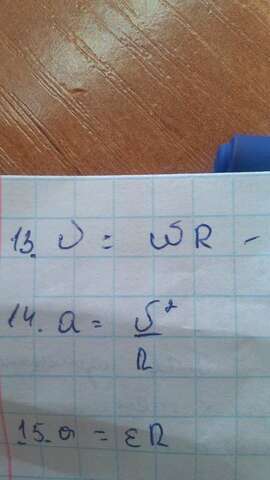 13. υ = ωR -
14. a = υ²/R
15. a = εR